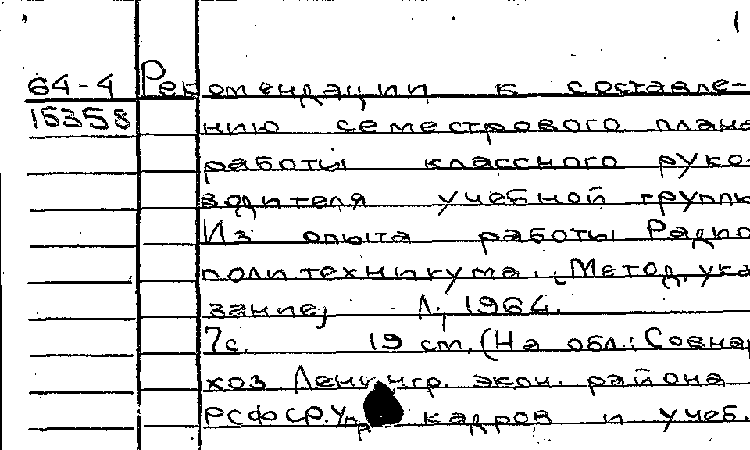 64-4 Рекомендации к составле-
15358 нию семестрового плана
работы классного руко-
водителя учебной группы
Из опыта работы Радио
политехникума. [Метод. ука
зание] Л., 1964.
7с. 19 см. (На обл.: Совнар
хоз Ленингр. экон. района
РСФСР. Упр кадров и учеб.